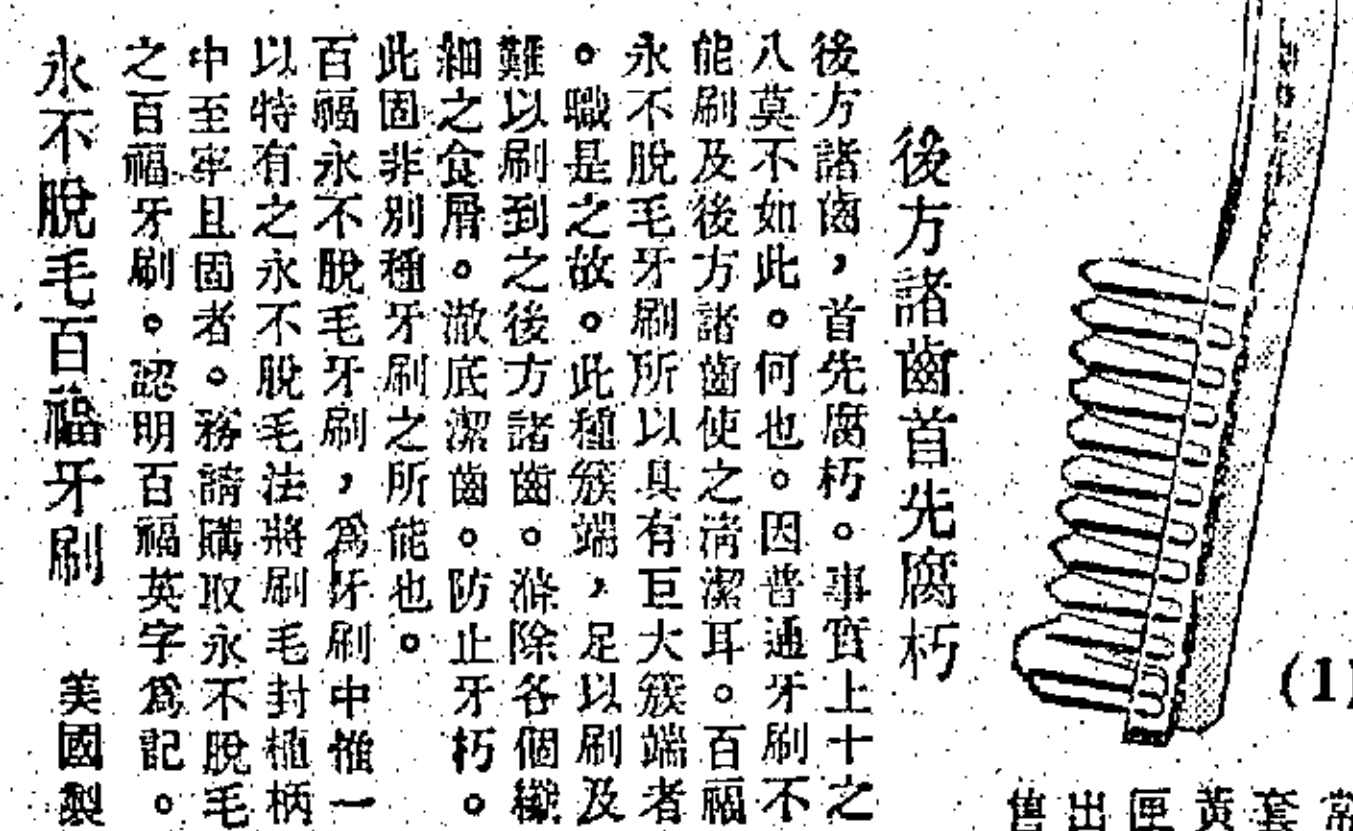 (1)
套
黃
匣
出
後方諸齒首先腐朽
後方諸齒，首先腐朽。事實上十之
八莫不如此。何也。因普通牙刷不
能刷及後方諸齒使之清潔耳。百福
永不脫毛牙刷所以具有巨大簇端者
。職是之故。此種簇端，足以刷及
難以刷到之後方諸齒。滌除各個纖
細之食屑。澈底潔齒。防止牙朽。
此固非別種牙刷之所能也。
百福永不脫毛牙刷，爲牙刷中惟一
以特有之永不脫毛法將刷毛封植柄
中至牢且固者。務請購取永不脫毛
之百福牙刷。認明百福英字爲記。
永不脫毛百福牙刷 美國製